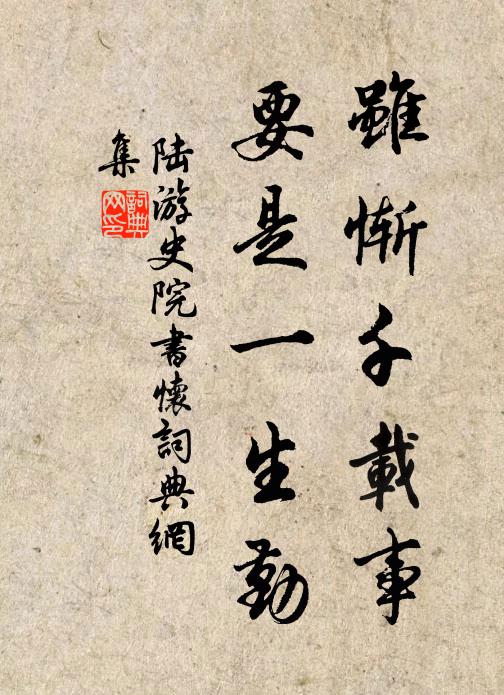 雖慚千載事
要是一生勤
陆游史院書懷詞典網
集
詞典
网印